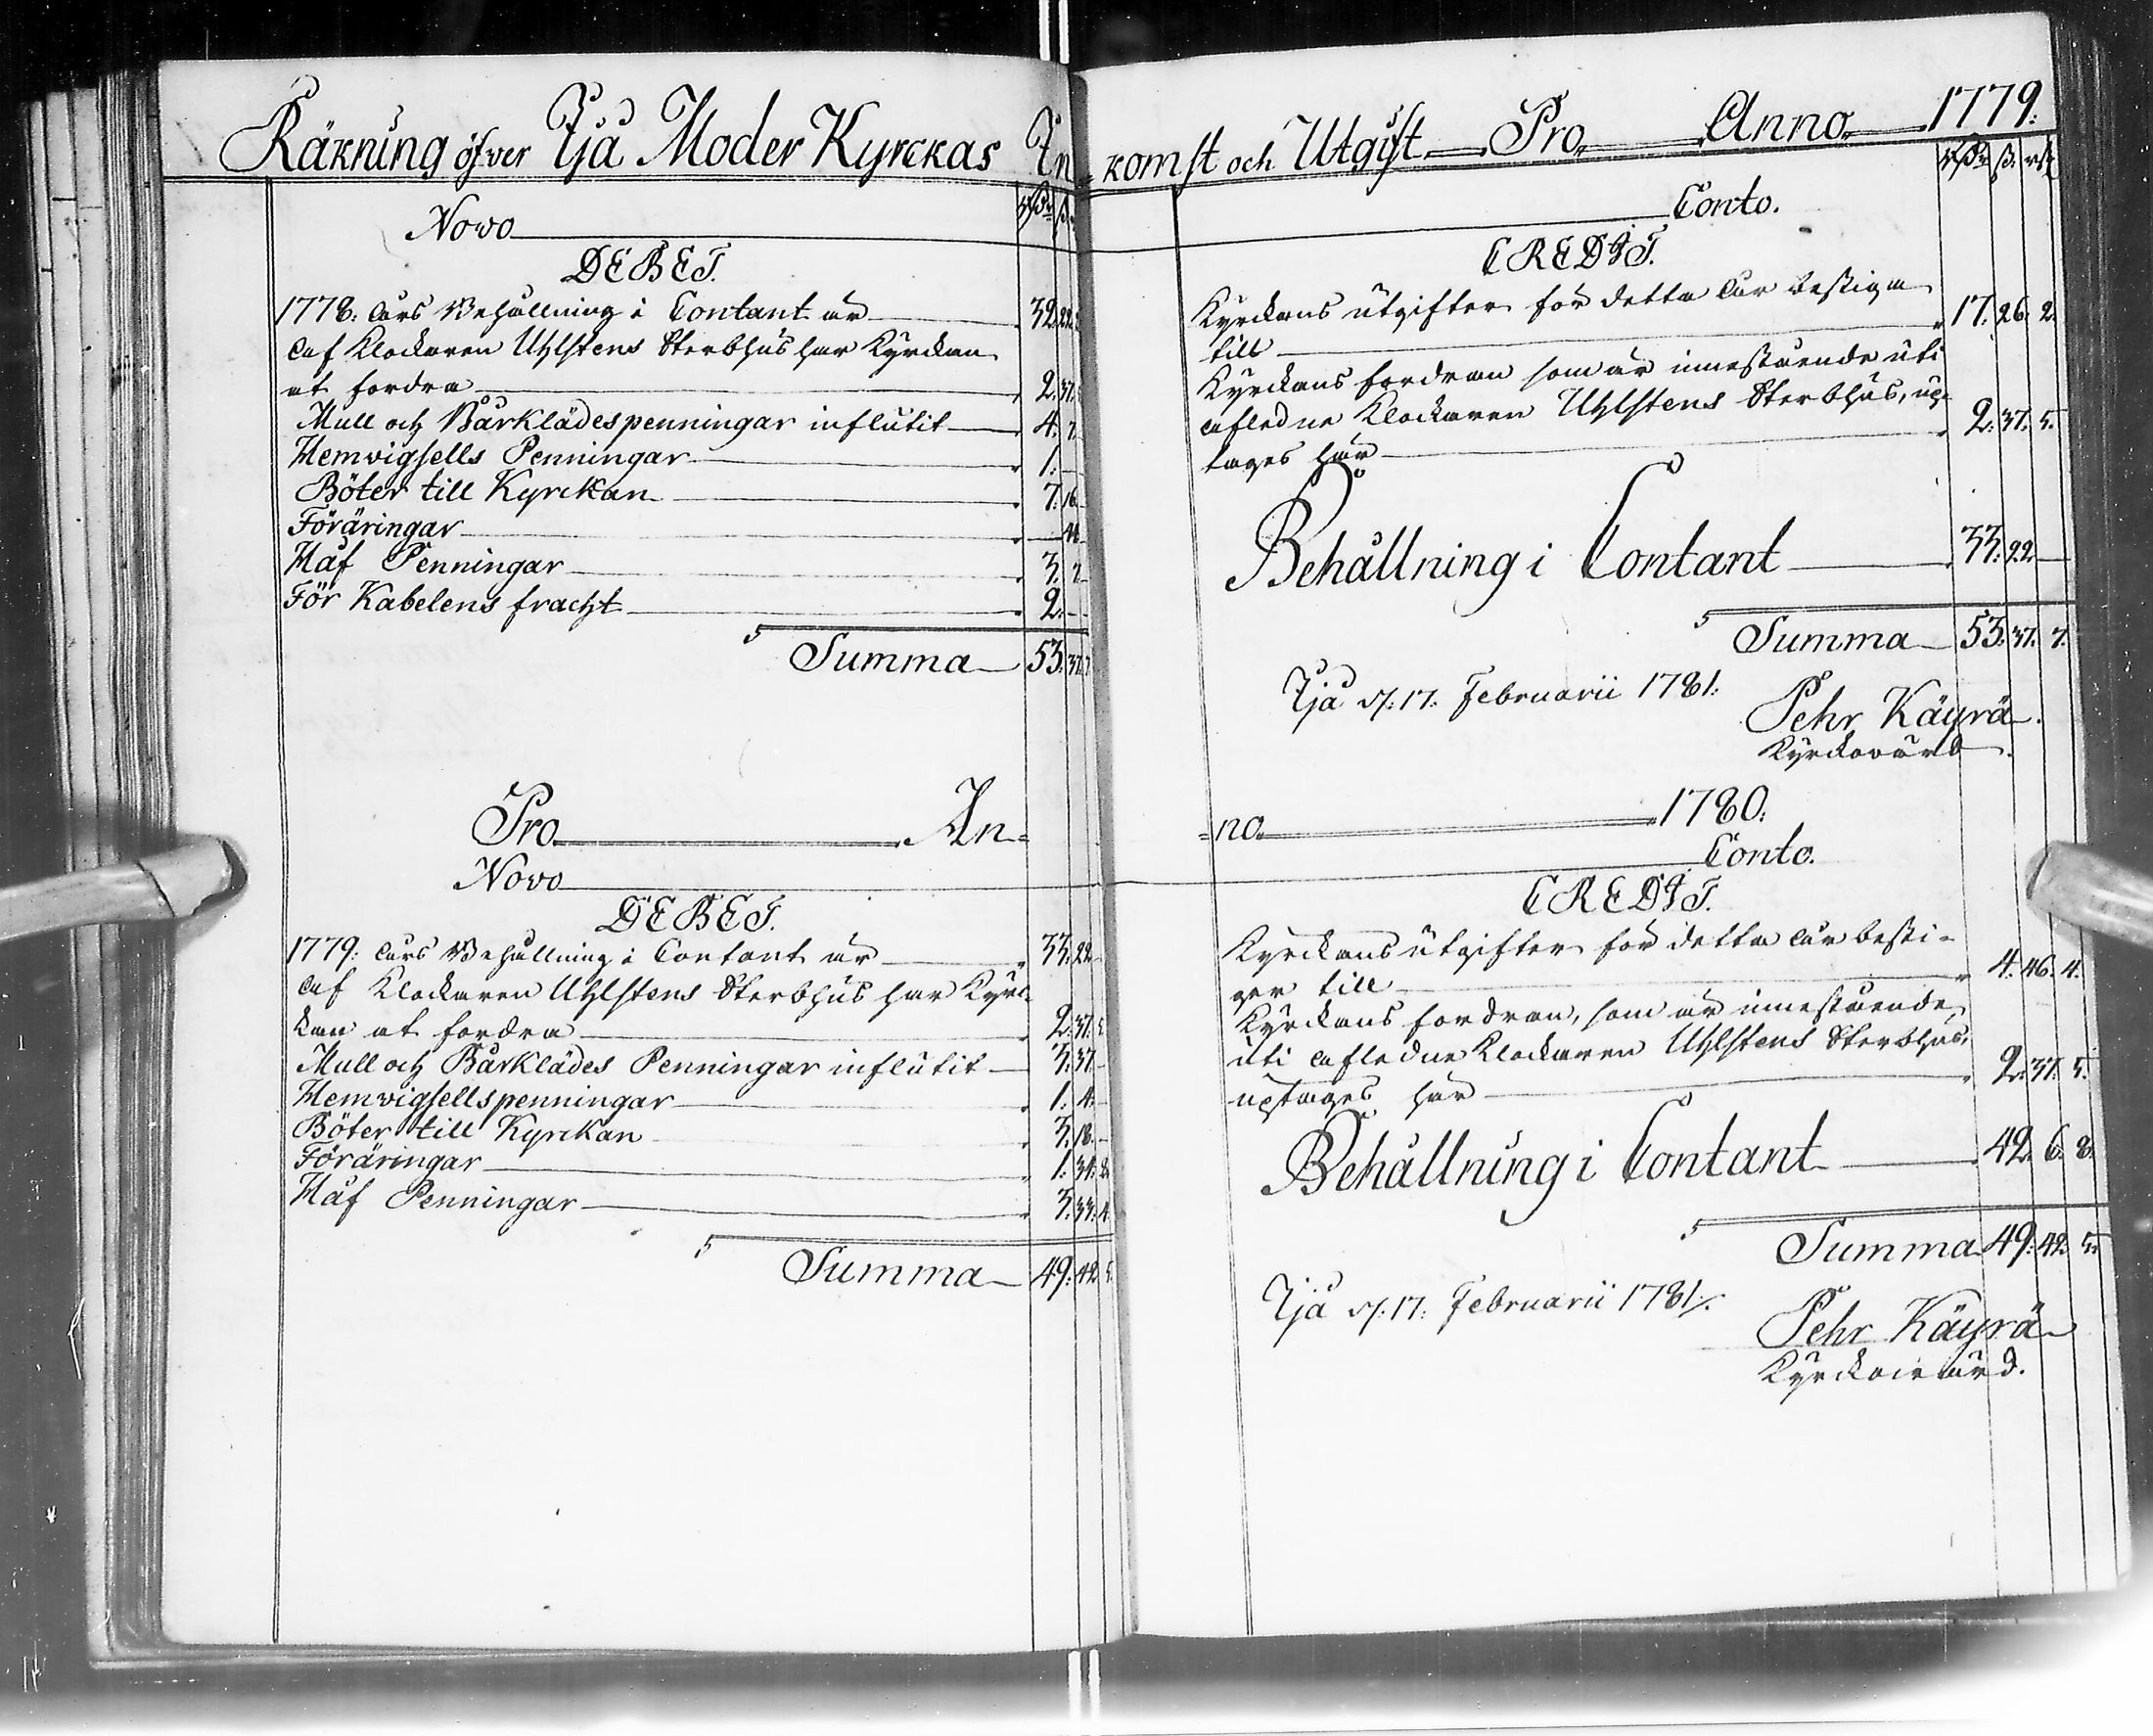 Räkning öfver Ijå Moder Kyrckas In=
Rdr ß.
Novo
DEBET.
1778: Års Behållning i Contant är 32. 22.
Af Klockaren Uhlstens Sterbhus har Kyrckan
at fordra 2. 37.
Mull och Bårklädespenningar influtit 4. 7.
Hemvigsells Penningar 1. —
Böter till Kyrckan 7. 16.
Föräringar —
Håf Penningar 3. 7.
För Kabelens fracht 2. —
Summa 53. 37. 7.
Pro An=
Novo
DEBET.
1779: Års Behållning i Contant är 33. 22.
Af Klockaren Uhlstens Sterbhus har Kyrc=
kan at fordra 2. 37. 5.
Mull och Bårklädes Penningar influtit 3. 37. —
Hemvigsellspenningar 1. 4. —
Böter till Kyrckan 3. 18. —
Föräringar 1. 34. 8.
Håf Penningar 3. 33. 4.
Summa 49. 42. 5.
=komst och Utgift Pro Anno 1779.
Rdr ß. rst
Conto.
CREDIT.
Kyrckans utgifter för detta År bestiga
till 17. 26. 2.
Kyrckans fordran som är innestående uti
afledne Klockaren Uhlstens Sterbhus, up-
tages här 2. 37. 5.
Behållning i Contant 33. 22. —
Summa 53. 37. 7.
Ijå d. 17. Februarii 1781.
Pehr Käyrä.
Kyrckovärd.
=no 1780.
Conto.
CREDIT.
Kyrckans utgifter för detta År besti=
ger till 4. 46. 4.
Kyrckans fordran, som är innestående
uti afledne Klockaren Uhlstens Sterbhus,
uptages här 2. 37. 5.
Behållning i Contant 42. 6. 8.
Summa 49. 42. 5.
Ijå d. 17. Februarii 1781.
Pehr Käyrä
Kyrckovärd.